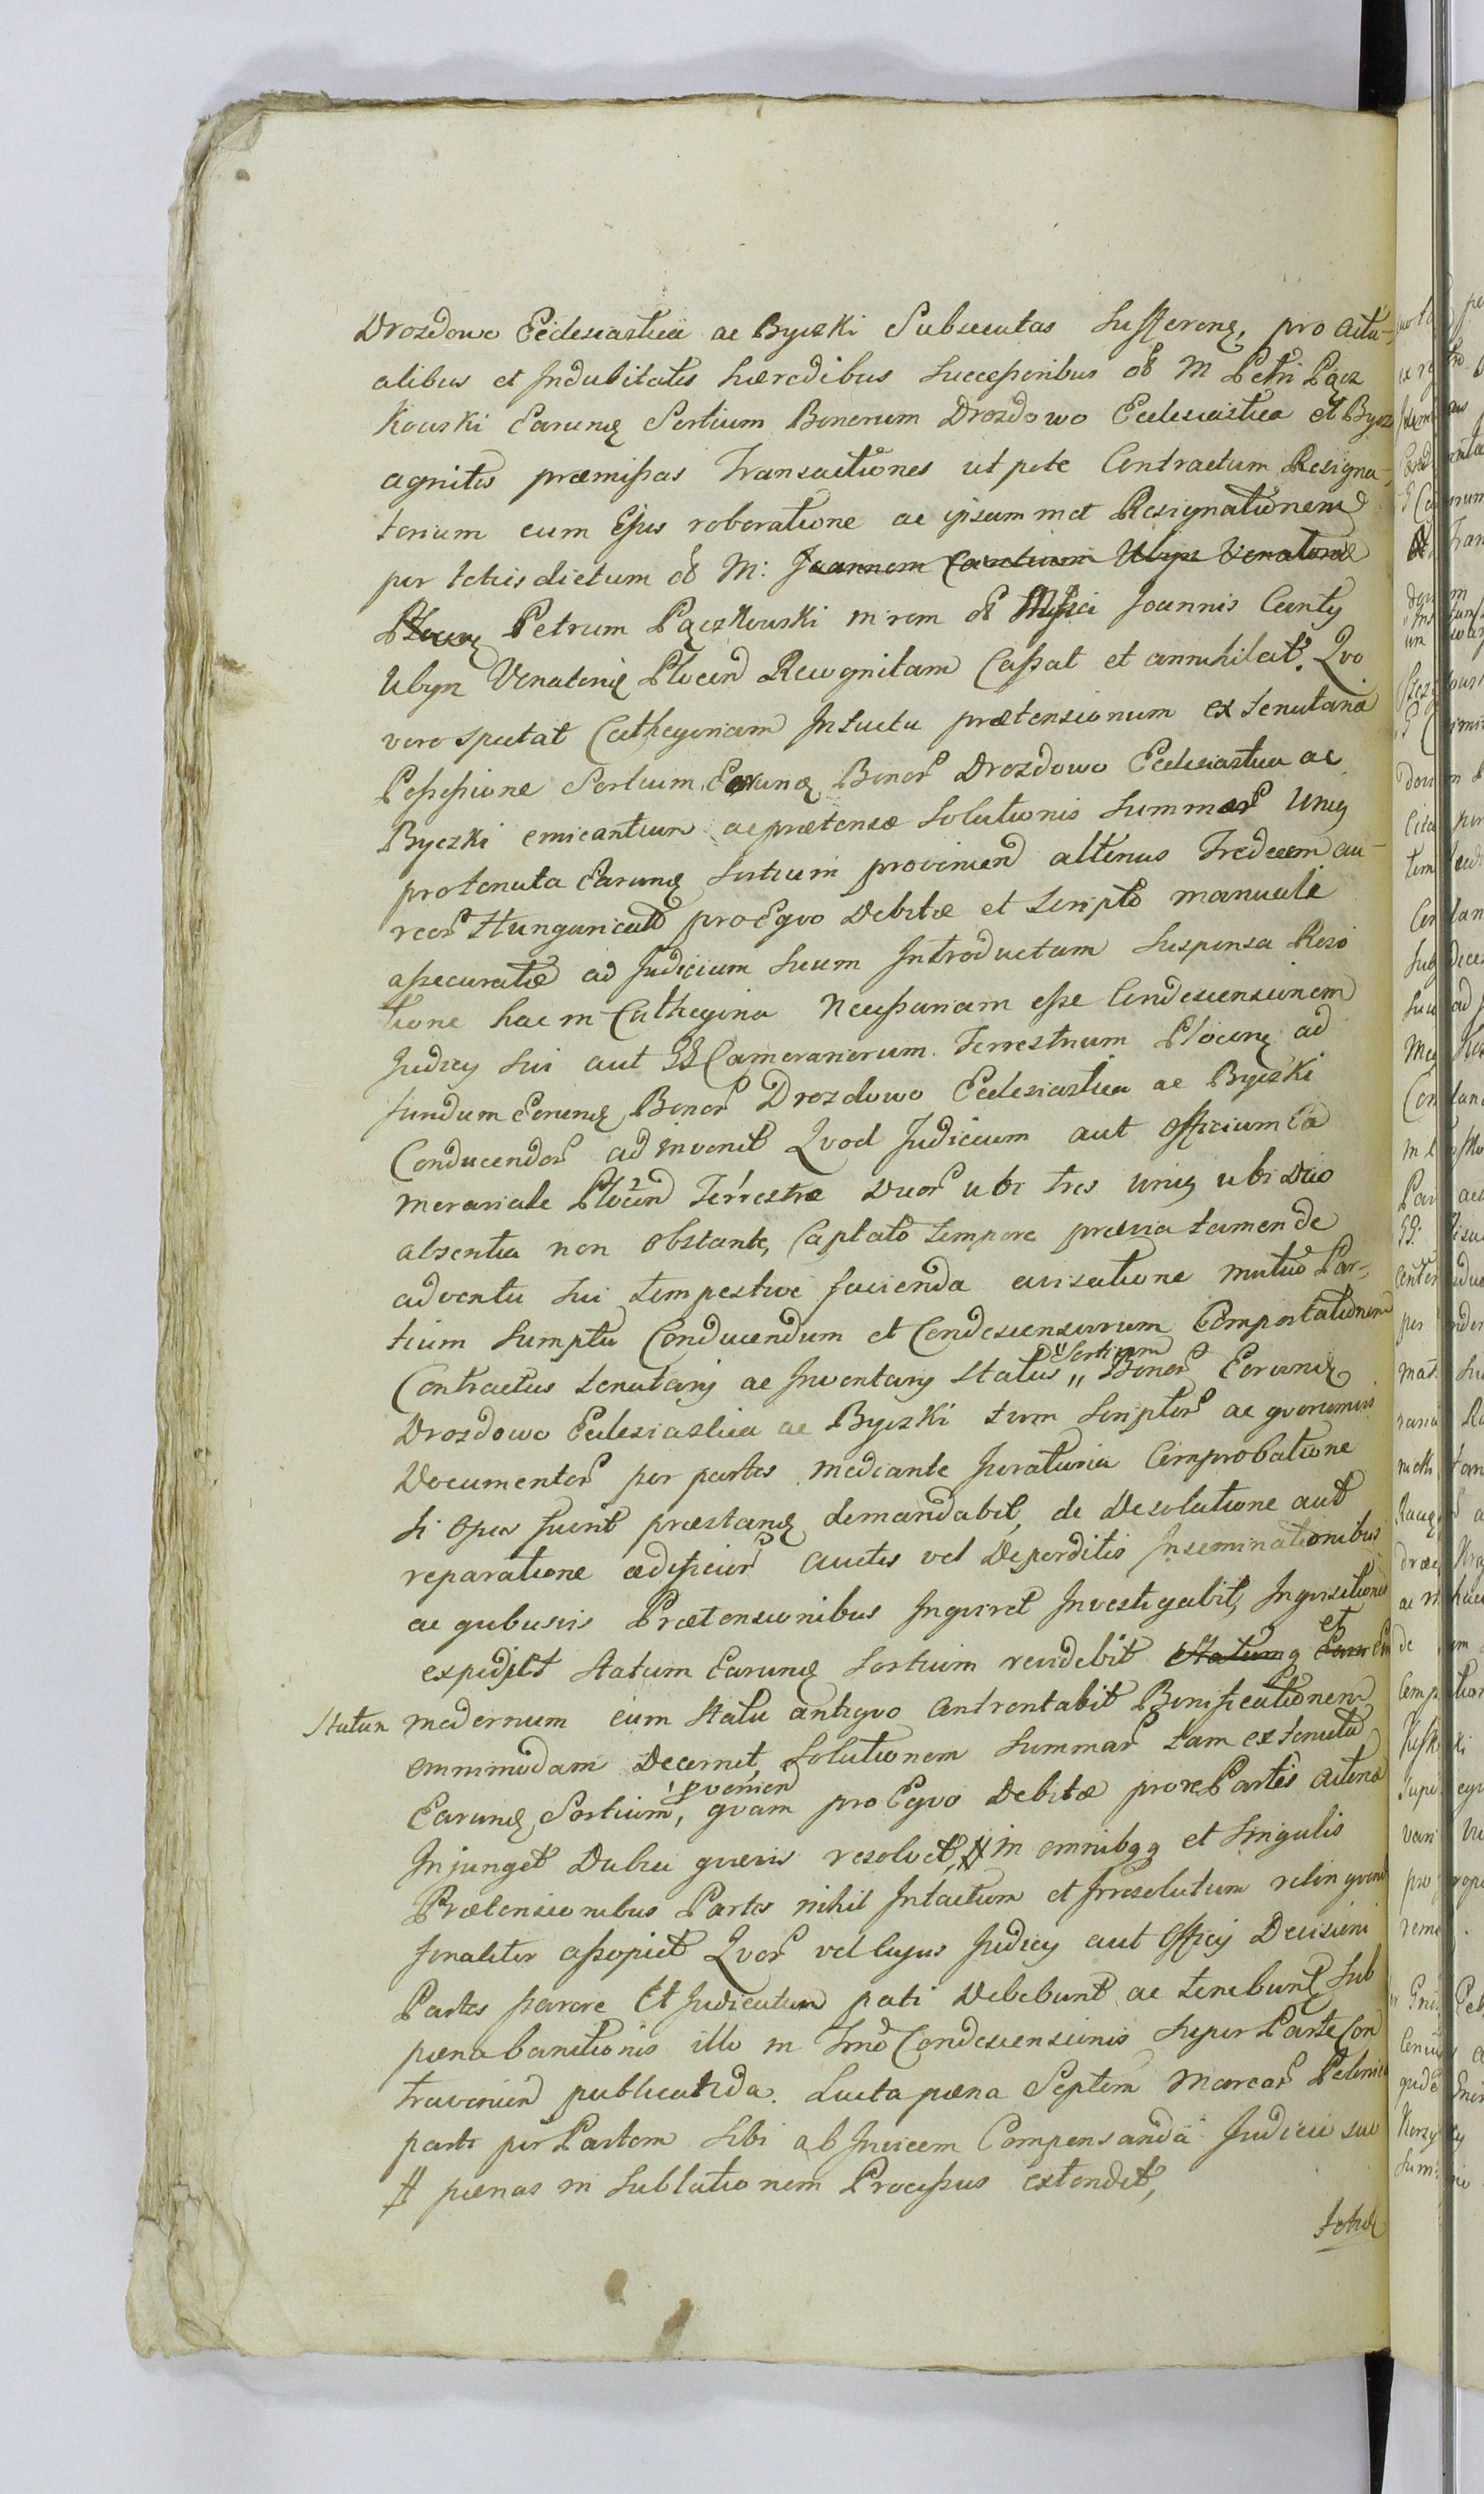 Drozdowo Ecclesiastica ac Byczki Subsecutas sufferenq, pro actu-
alibus et Indubitatis hæredibus successoribus olim M Petri Pącz
kowski Earunq Sortium Bonorum Drozdowo Ecclesiastica et Byczki
agnitis præmissas Transactiones ut pote Contractum Resigna-
torium cum Ejus roboratione ac ipsam met Resignationem
per toties dictum olim M: Joannem Cantium Ubysz Venatorem
Plocen Petrum Pączkowski in rem olim Mgfici Joannis Canty
Ubysz Venatoris Plocen Recognitam Cassat et annihilat. Quo
vero spectat Cathegoriam Intuitu prætensionum ex tenutaria
Possessione Sortium Earunq Bonor Drozdowo Ecclesiastica ac
Byczki emicantium ac prætensæ solutionis summar Unius
pro tenuta Earunq sortium provenien alterius Tredecem au-
reor Hungarical pro Equo Debitæ et scripto manuali
assecuratæ ad Judicium suum Introductam suspensa Reso
tione hac in Cathegoria Necessariam esse Condescensionem
Judicy sui aut GG Camerariorum Terrestrium Plocenq ad
fundum Eorunq Bonor Drozdowo Ecclesiastica ac Byczki
Conducendor ad invenit Quod Judicium aut Officium Ca
merariale Plocen Terrestræ Duor ubi tres unius ubi Duo
absentia non obstante, Captato tempore prævia tamen de
adventu sui tempestive facienda avisatione mutuo Par-
tium sumptu Conducendum et Condescensurum Comportationem
Contractus tenutarij ac Inventarij status " Sortium Bonor Eorunq
Drozdowo Ecclesiastica ac Byczki tum scriptor ac quorumvis
Documentor per partes mediante Juratoria Comprobatione
si Opus fuerit præstanq demandabit, de Desolatione aut
reparatione ædificior auctis vel Deperditis Inseminationibus
ac quibusvis Prætensionibus Inquiret Investigabit, Inquisitiones
expediet statum Earunq sortium revidebit et Statumq
Statum modernum cum statu antiquo Confrontabit Bonificationem
omnimodam Decernet, solutionem summar tam ex tenuta
Earunq Sortium, provenien quam pro Equo Debitæ pro re Partis actoræ
Injunget Dubia quævis resolvet, # in omnibqq et singulis
Prætensionibus Partes nihil Intactum et Irresolutum relinquend
finaliter assopiet Quor vel cujus Judicy aut Officij Decisioni
Partes parere Et Judicatum pati Debebunt ac tenebunt, sub
pæna banitionis illo in Tmno Condescensionis super Parte Con
travenien publicanda. Lucta pæna Septem Marcar Polonica
parti per Partem sibi ab Invicem Compensanda Judicii suo
# pænas in sublationem Processus extendet,